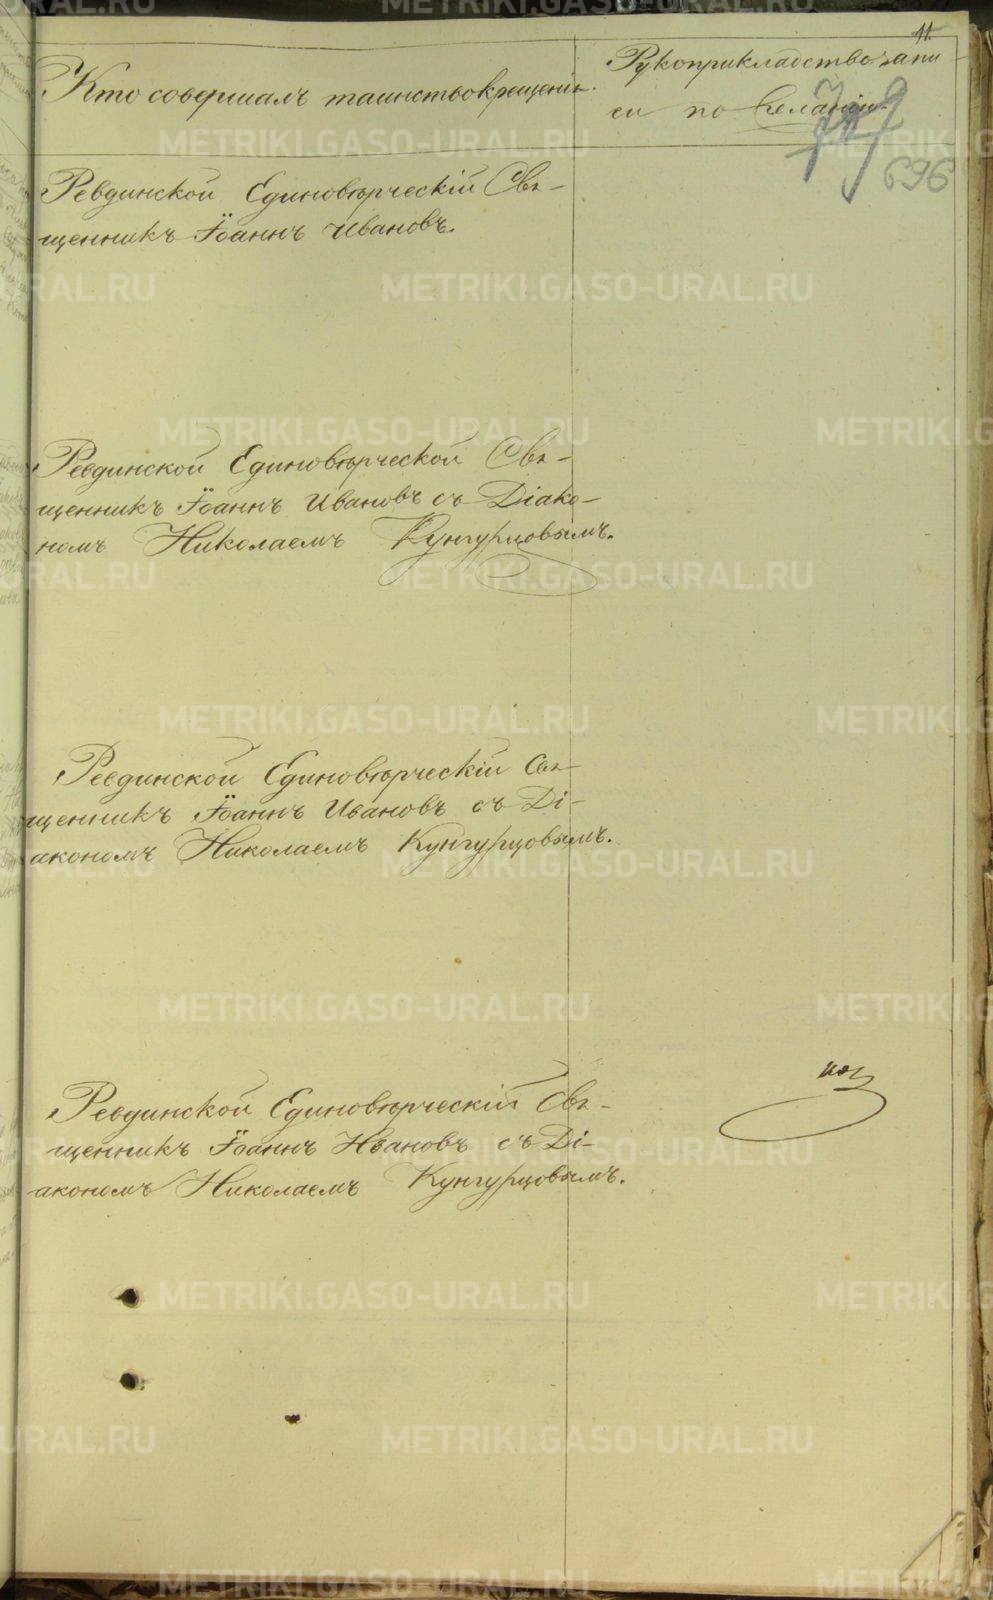 11.
Кто совершалъ таинство крещенія.
Рукоприкладство запи
си по желанію.
696
Ревдинской Единовѣрческій Свя-
щенникъ Іоаннъ Ивановъ.
Ревдинской Единовѣрческой Свя-
щенникъ Іоаннъ Ивановъ съ Діако-
номъ Николаемъ Кунгурцовымъ.
Ревдинской Единовѣрческій Свя-
щенникъ Іоаннъ Ивановъ съ Ді-
акономъ Николаемъ Кунгурцовымъ.
Ревдинской Единовѣрческій Свя-
щенникъ Іоаннъ Ивановъ съ Ді-
акономъ Николаемъ Кунгурцовымъ.
METRIKI.GASO-URAL.RU